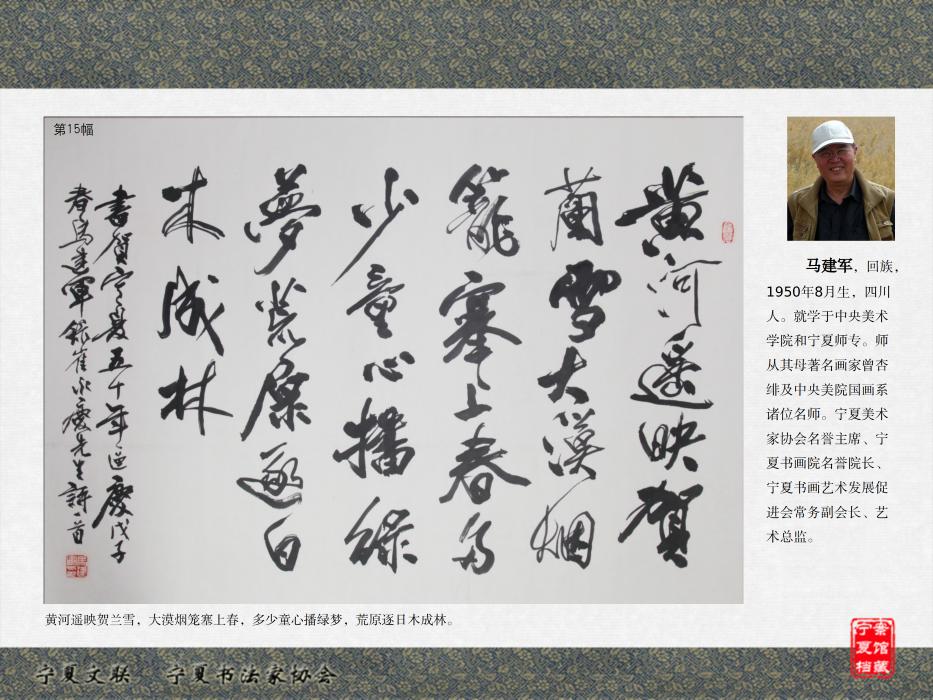 第15幅
黄河遥映賀
蘭雪大漠烟
籠塞上春多
少童心播綠
夢荒原逐日
木成林
書賀宁夏五十年慶戊子
春馬建軍錄崔永慶先生詩一首
黄河遥映贺兰雪，大漠烟笼塞上春，多少童心播绿梦，荒原逐日木成林。
马建军，回族，
1950年8月生，四川
人。就学于中央美术
学院和宁夏师专。师
从其母著名画家曾杏
绯及中央美院国画系
诸位名师。宁夏美术
家协会名誉主席、宁
夏书画院名誉院长、
宁夏书画艺术发展促
进会常务副会长、艺
术总监。
宁夏文联 宁夏书法家协会
宁夏档
案馆藏